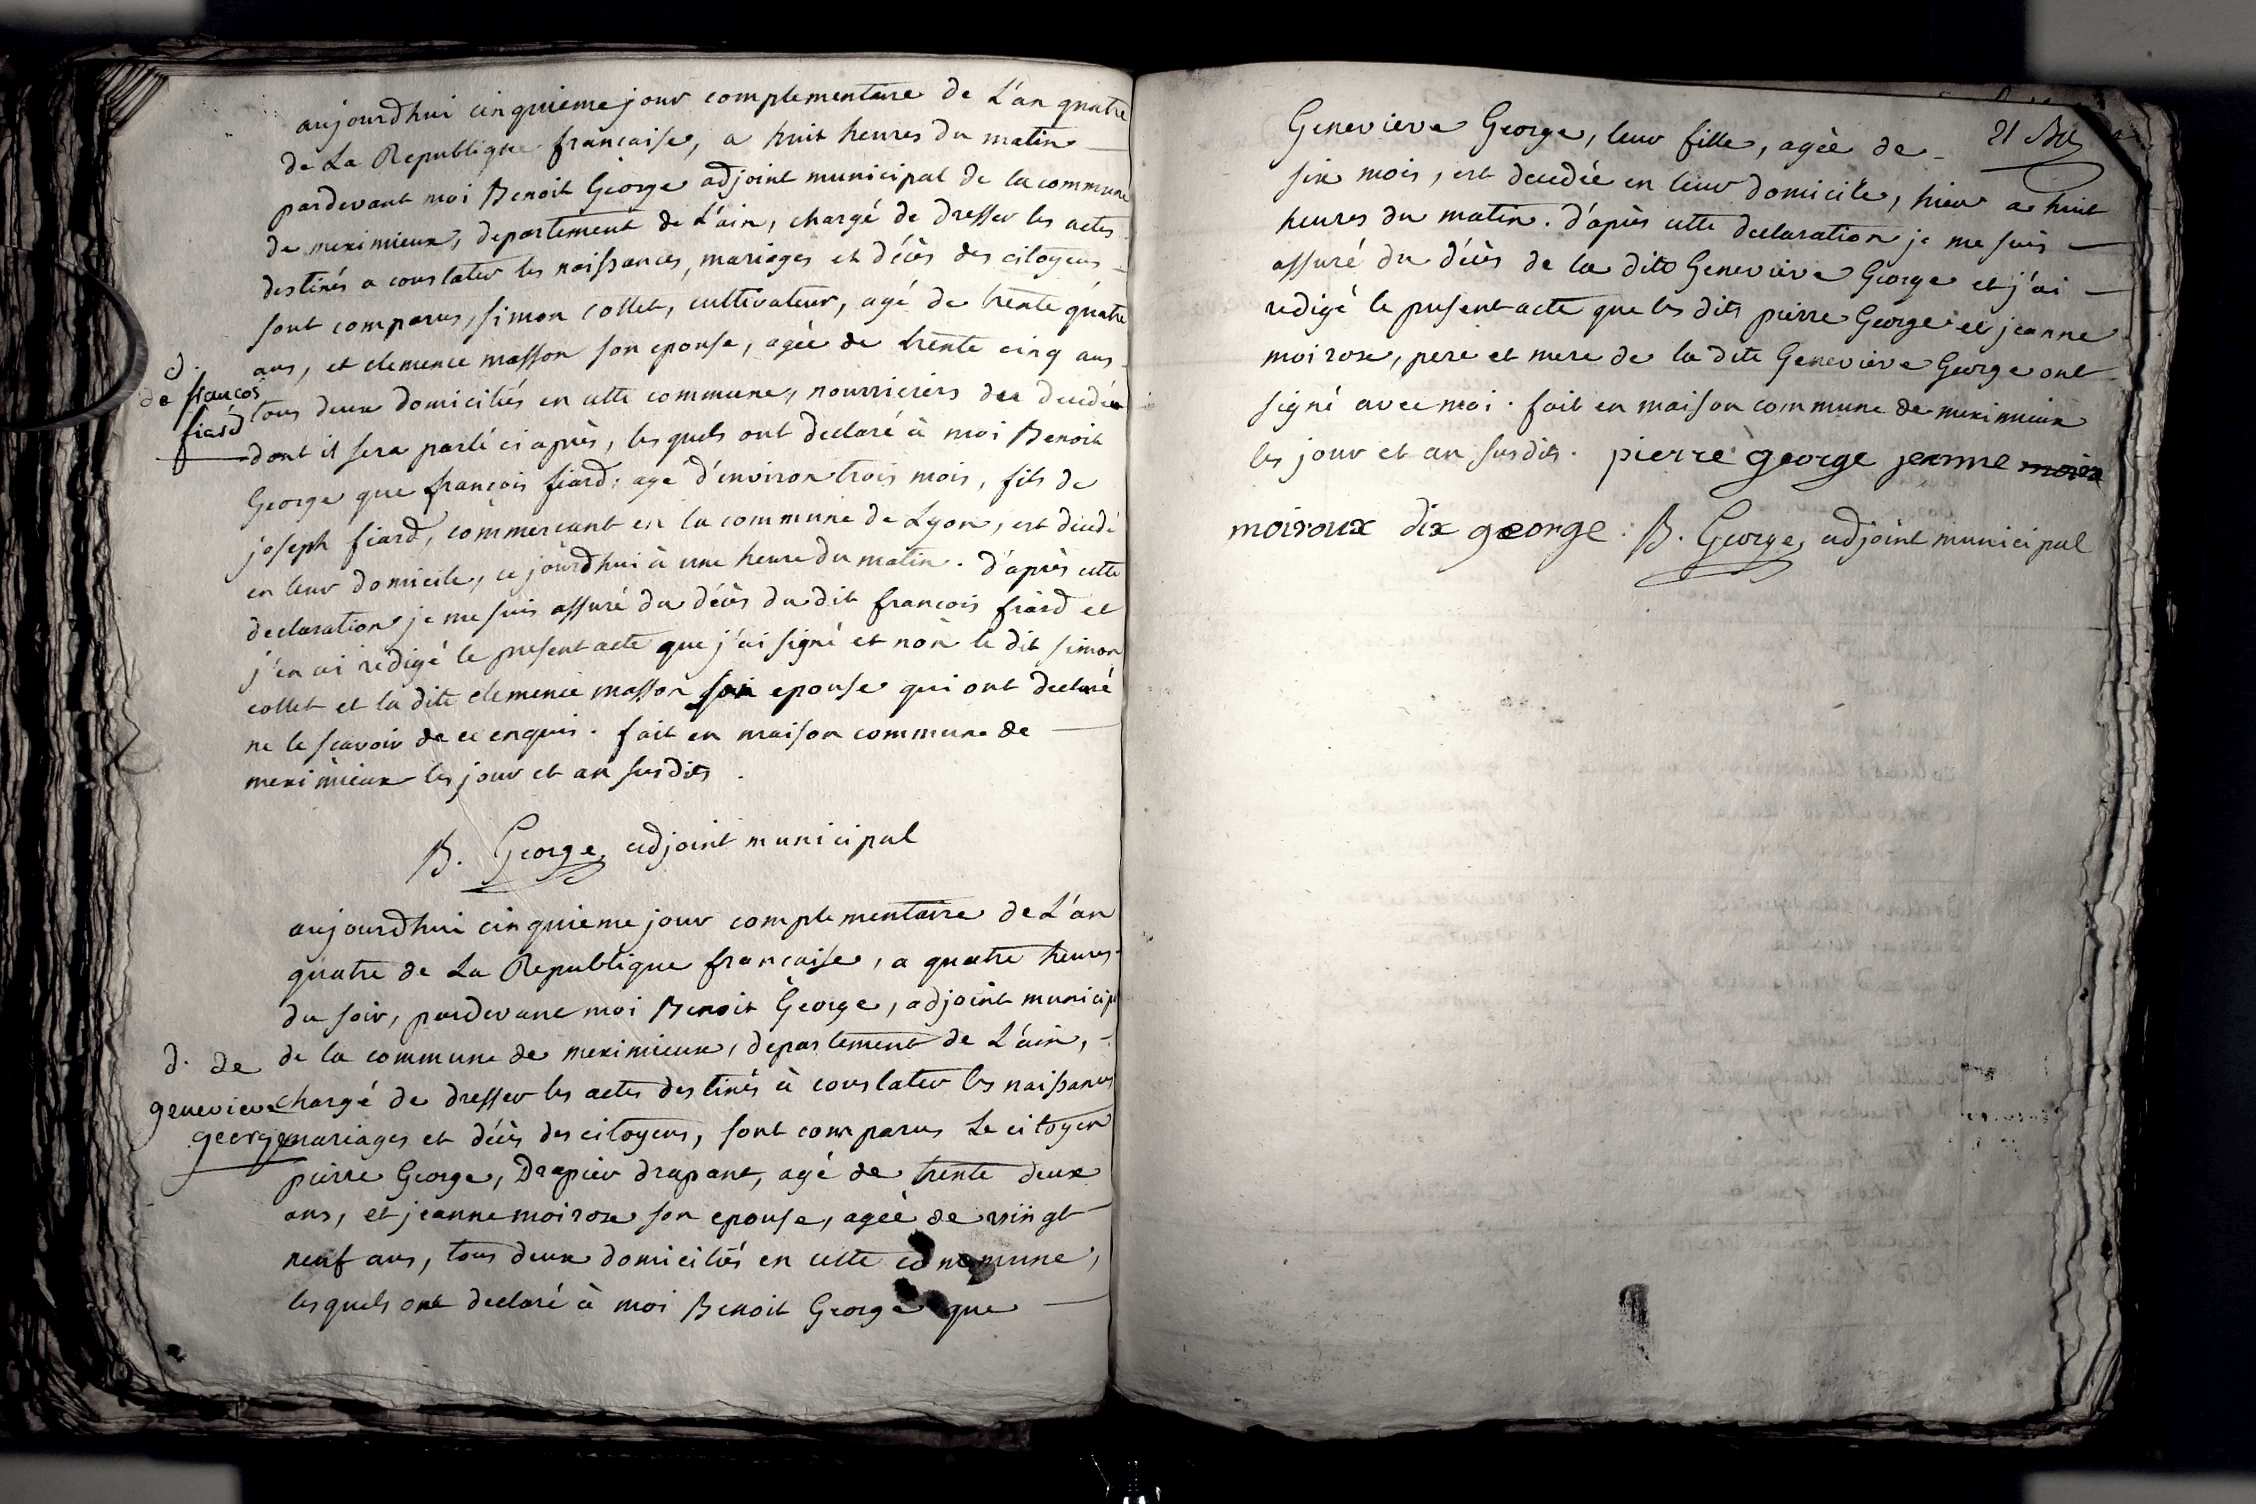 aujourdhui cinquieme jour complementaire de L'an quatre
de La Republique française, a huit heures du matin
pardevant moi Benoit George adjoint municipal de la commune
de meximieux, departement de L'ain, chargé de dresser les actes
destinés a constater les naissances, mariages et décès des citoyens
sont comparus, simon collet, cultivateur, agé de trente quatre
ans, et clemence masson son epouse, agée de trente cinq ans
d.
de francois
fiard
tous deux domiciliés en cette commune, nourriciers du decedé
dont il sera parlé ci après, lesquels ont declaré à moi Benoit
George que françois fiard, agé d'environ trois mois, fils de
joseph fiard, commercant en la commune de Lyon, est decedé
en leur domicile, ce jourdhui à une heure du matin. d'après cette
declaration je me suis assuré du décès du dit francois fiard et
j'en ai redigé le present acte que j'ai signé et non le dit simon
collet et la dite clemence masson son epouse qui ont declaré
ne le scavoir de ce enquis. fait en maison commune de
meximieux les jour et an susdits.
B. George, adjoint municipal
aujourdhui cinquieme jour complementaire de L'an
quatre de La Republique francaise, a quatre heures
du soir, pardevant moi Benoit George, adjoint municip
de la commune de meximieux, departement de L'ain,
d. de
genevieve
george
chargé de dresser les actes destinés à constater les naissances
mariages et décès des citoyens, sont comparus Le citoyen
pierre George, Drapier drapant, agé de trente deux
ans, et jeanne moiroux son epouse, agée de vingt
neuf ans, tous deux domiciliés en cette commune,
lesquels ont declaré à moi Benoit George que
21
Genevieve George, leur fille, agée de
six mois, est decedée en leur domicile, hier a huit
heures du matin. d'après cette declaration je me suis
assuré du décès de la dite Genevieve George et j'ai
redigé le present acte que les dits pierre George et jeanne
moiroux, pere et mere de la dite Genevieve George ont
signé avec moi. fait en maison commune de meximieux
les jour et an susdits. pierre george jeanne
moiroux dix george. B. George, adjoint municipal